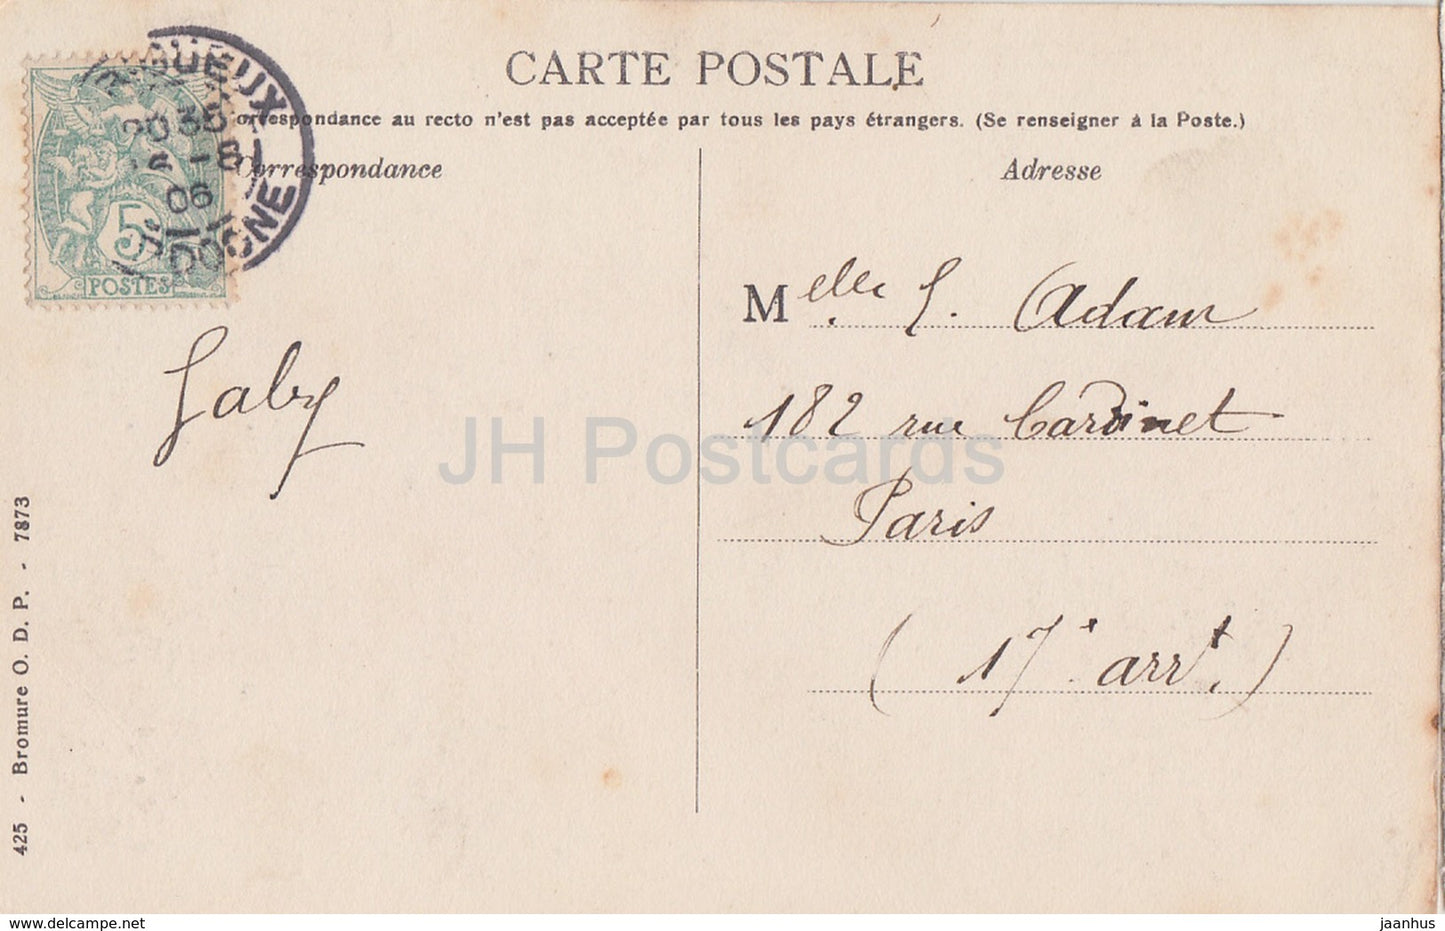 CARTE POSTALE
orrespondance au recto n'est pas acceptée par tous les pays étrangers. (Se renseigner à la Poste.)
Correspondance
Adresse
GUEUX
20 35
6 -8
06
DOGNE
5
POSTES
Melle S. Adam
182 rue Cardinet
Paris
(17e arrt.)
Gaby
425 - Bromure O. D. P. - 7873
JH Postcards
www.delcampe.net
jaanhus